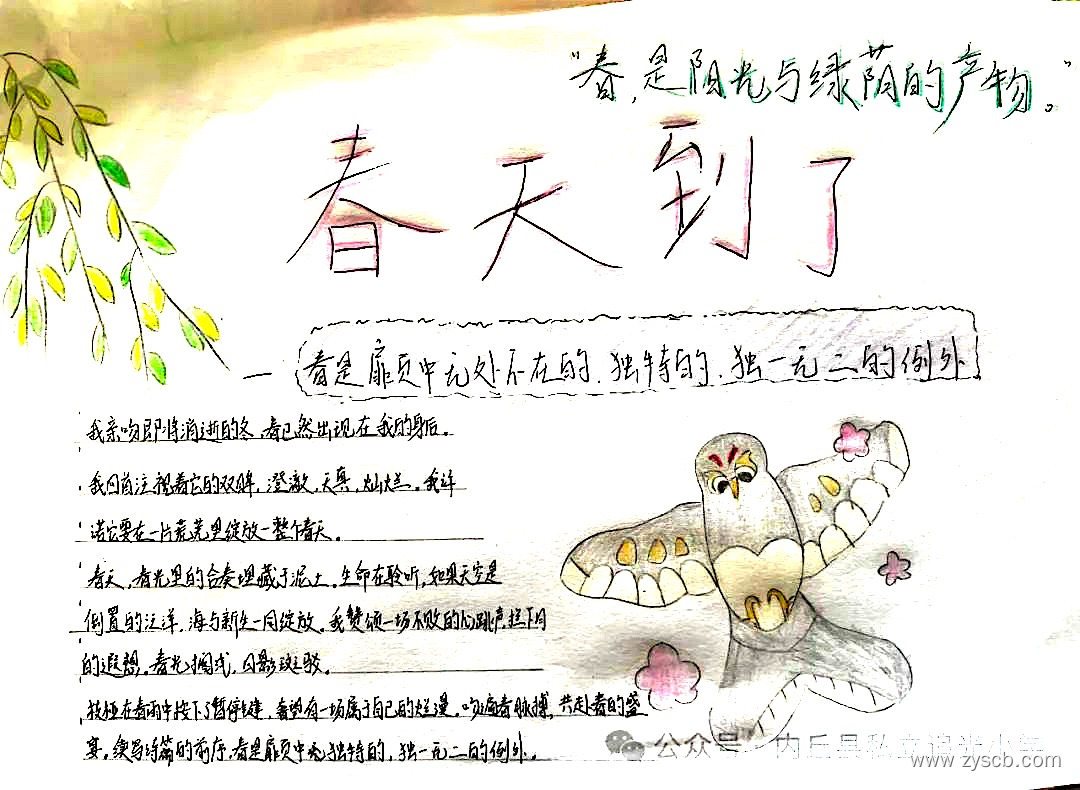 “春,是阳光与绿荫的产物。”
春天到了
— 春是扉页中无处不在的、独特的、独一无二的例外
我亲吻即将消逝的冬,春已然出现在我的身后。
我回首注视着它的双眸,澄澈,天真,灿烂。我许
诺它要在一片荒芜里绽放一整个春天。
春天,春光里的合奏埋藏于泥土。生命在聆听,如果天空是
倒置的汪洋,海与新生一同绽放。我赞颂一场不败的心跳声拦下月
的遐想。春光摑式,日影斑驳。
枝桠在春雨中按下了暂停键,奢望有一场属于自己的烂漫。吻遍春脉搏,共赴春的盛
宴。续写诗篇的前序,春是扉页中无独特的,独一无二的例外。
公众号 内丘县私立追光小学
www.zyscb.com